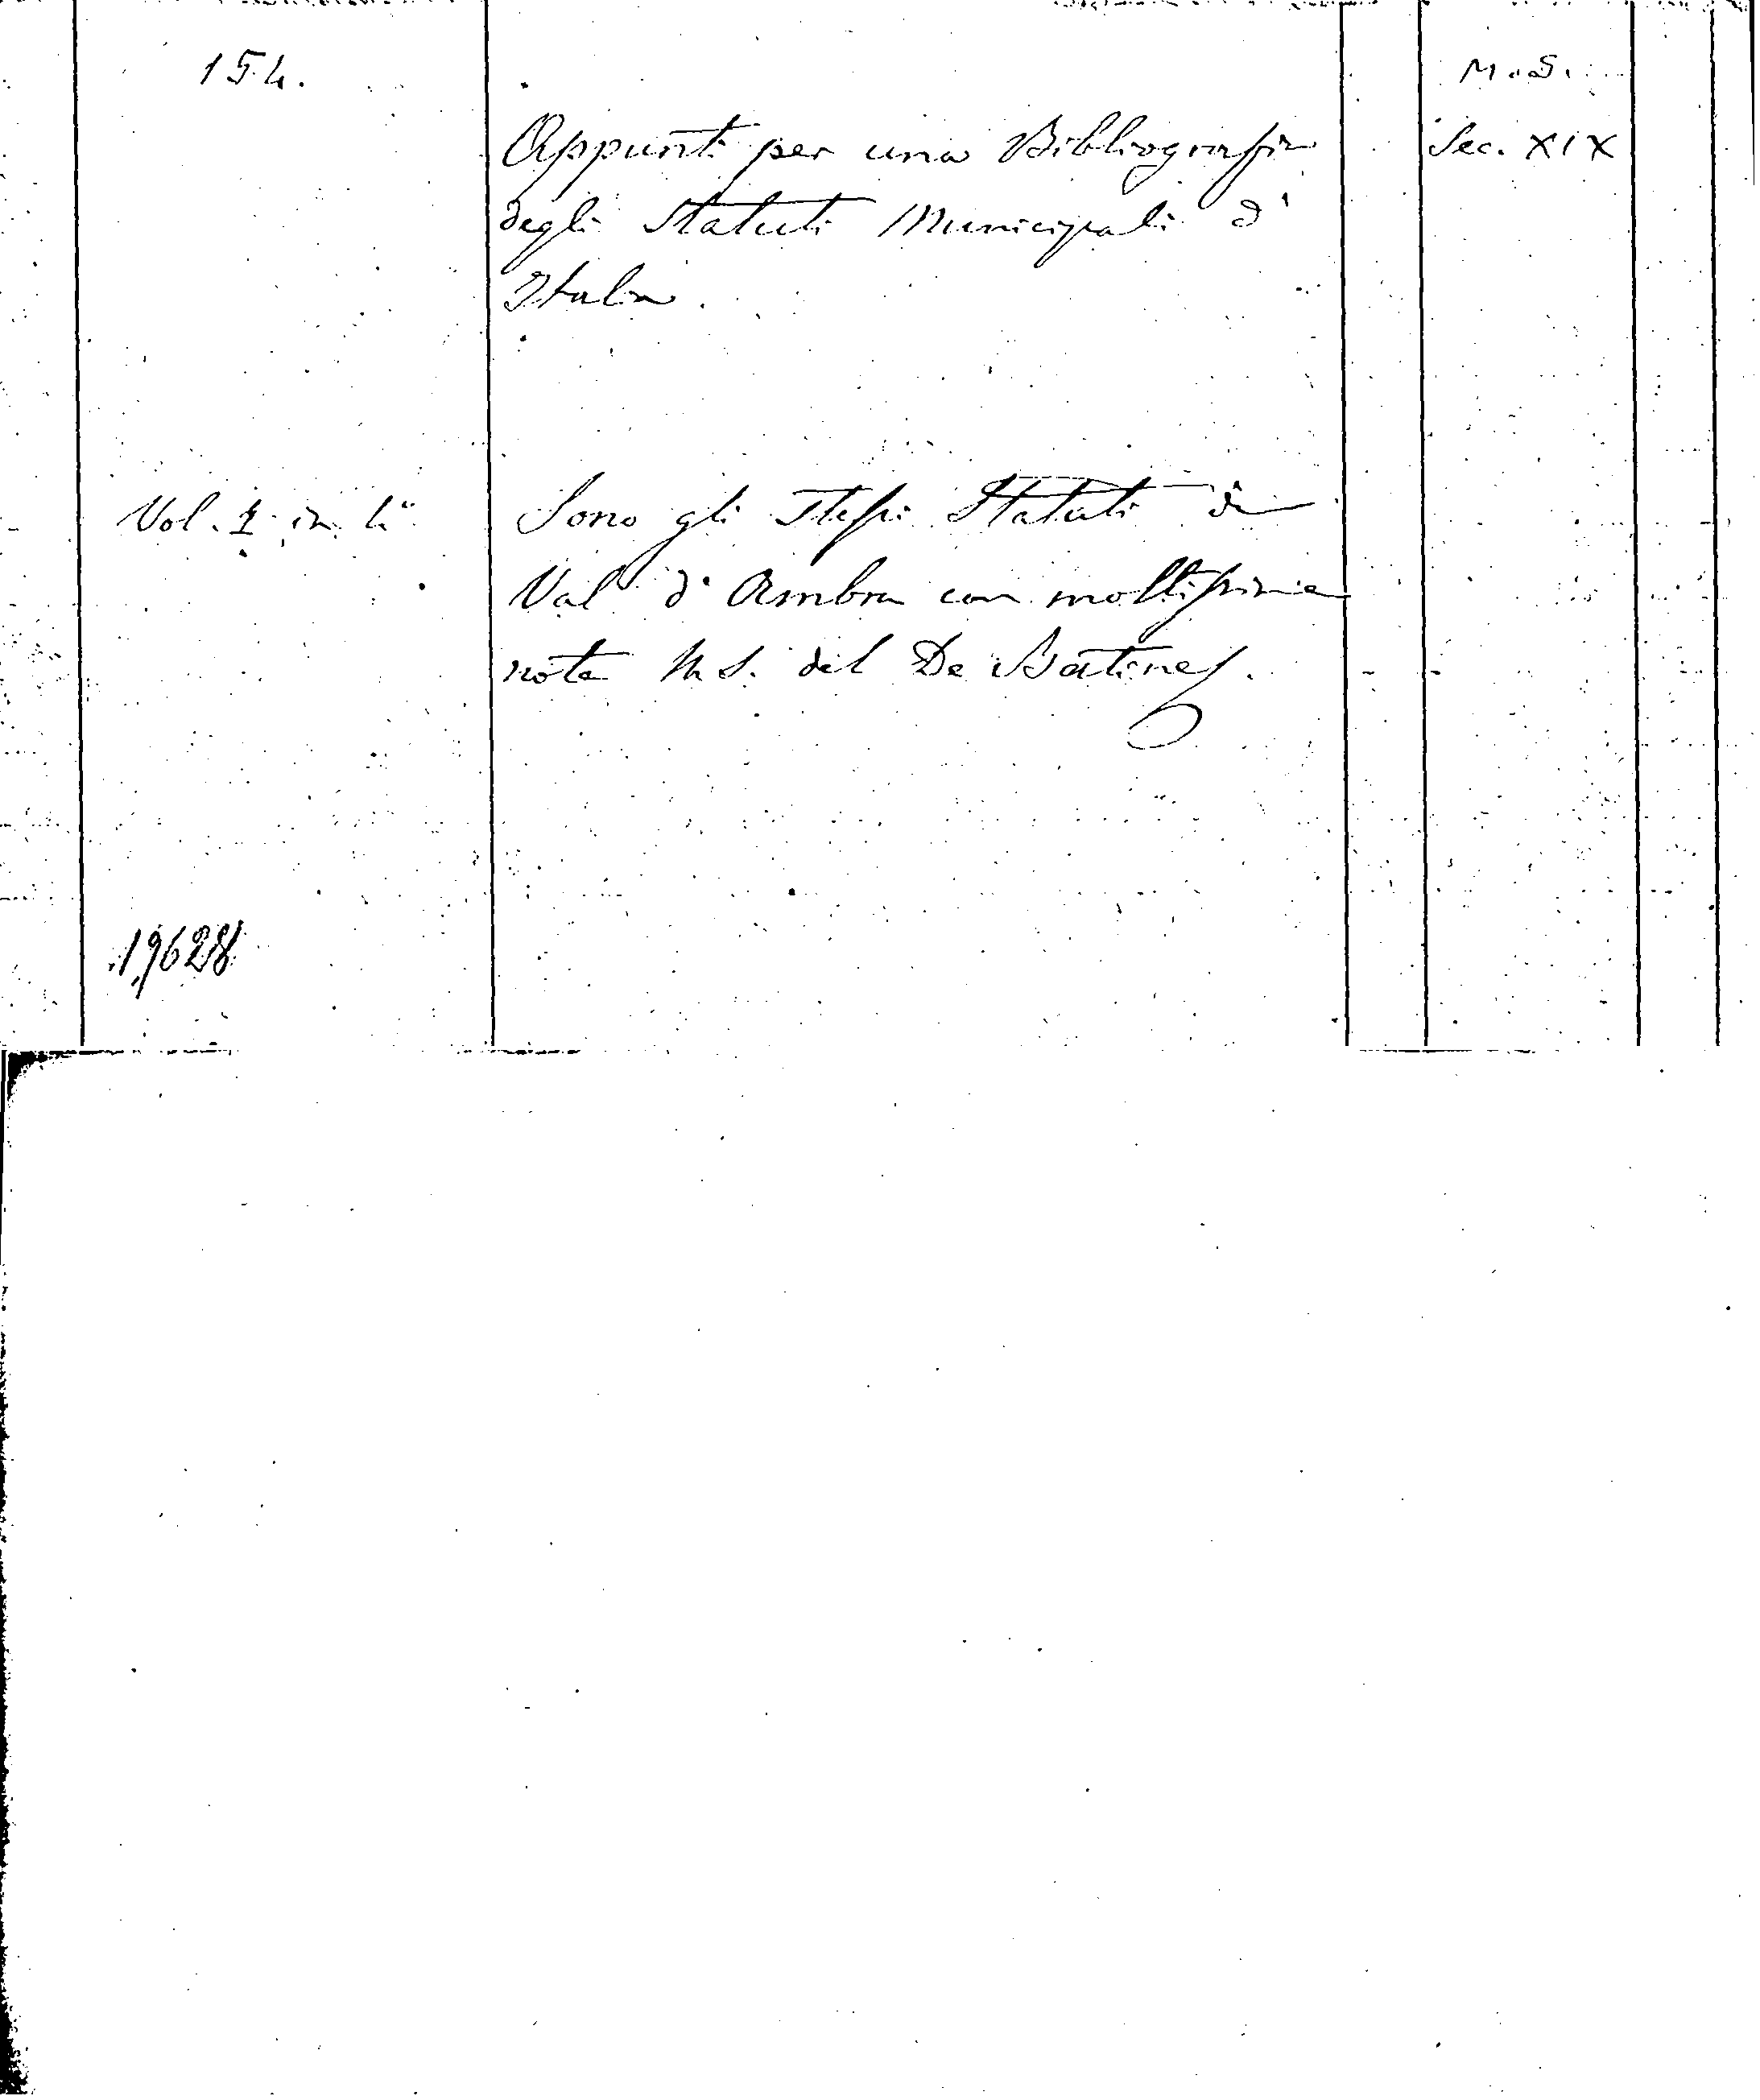 154.
M.S.
Appunti per una Bibliografia
Sec. XIX
degli Statuti Municipali d'
Italia.
Vol. 1 in 4°
Sono gli stessi Statuti di
Val d'Ambra con moltissime
note MS. del De Batines.
19628